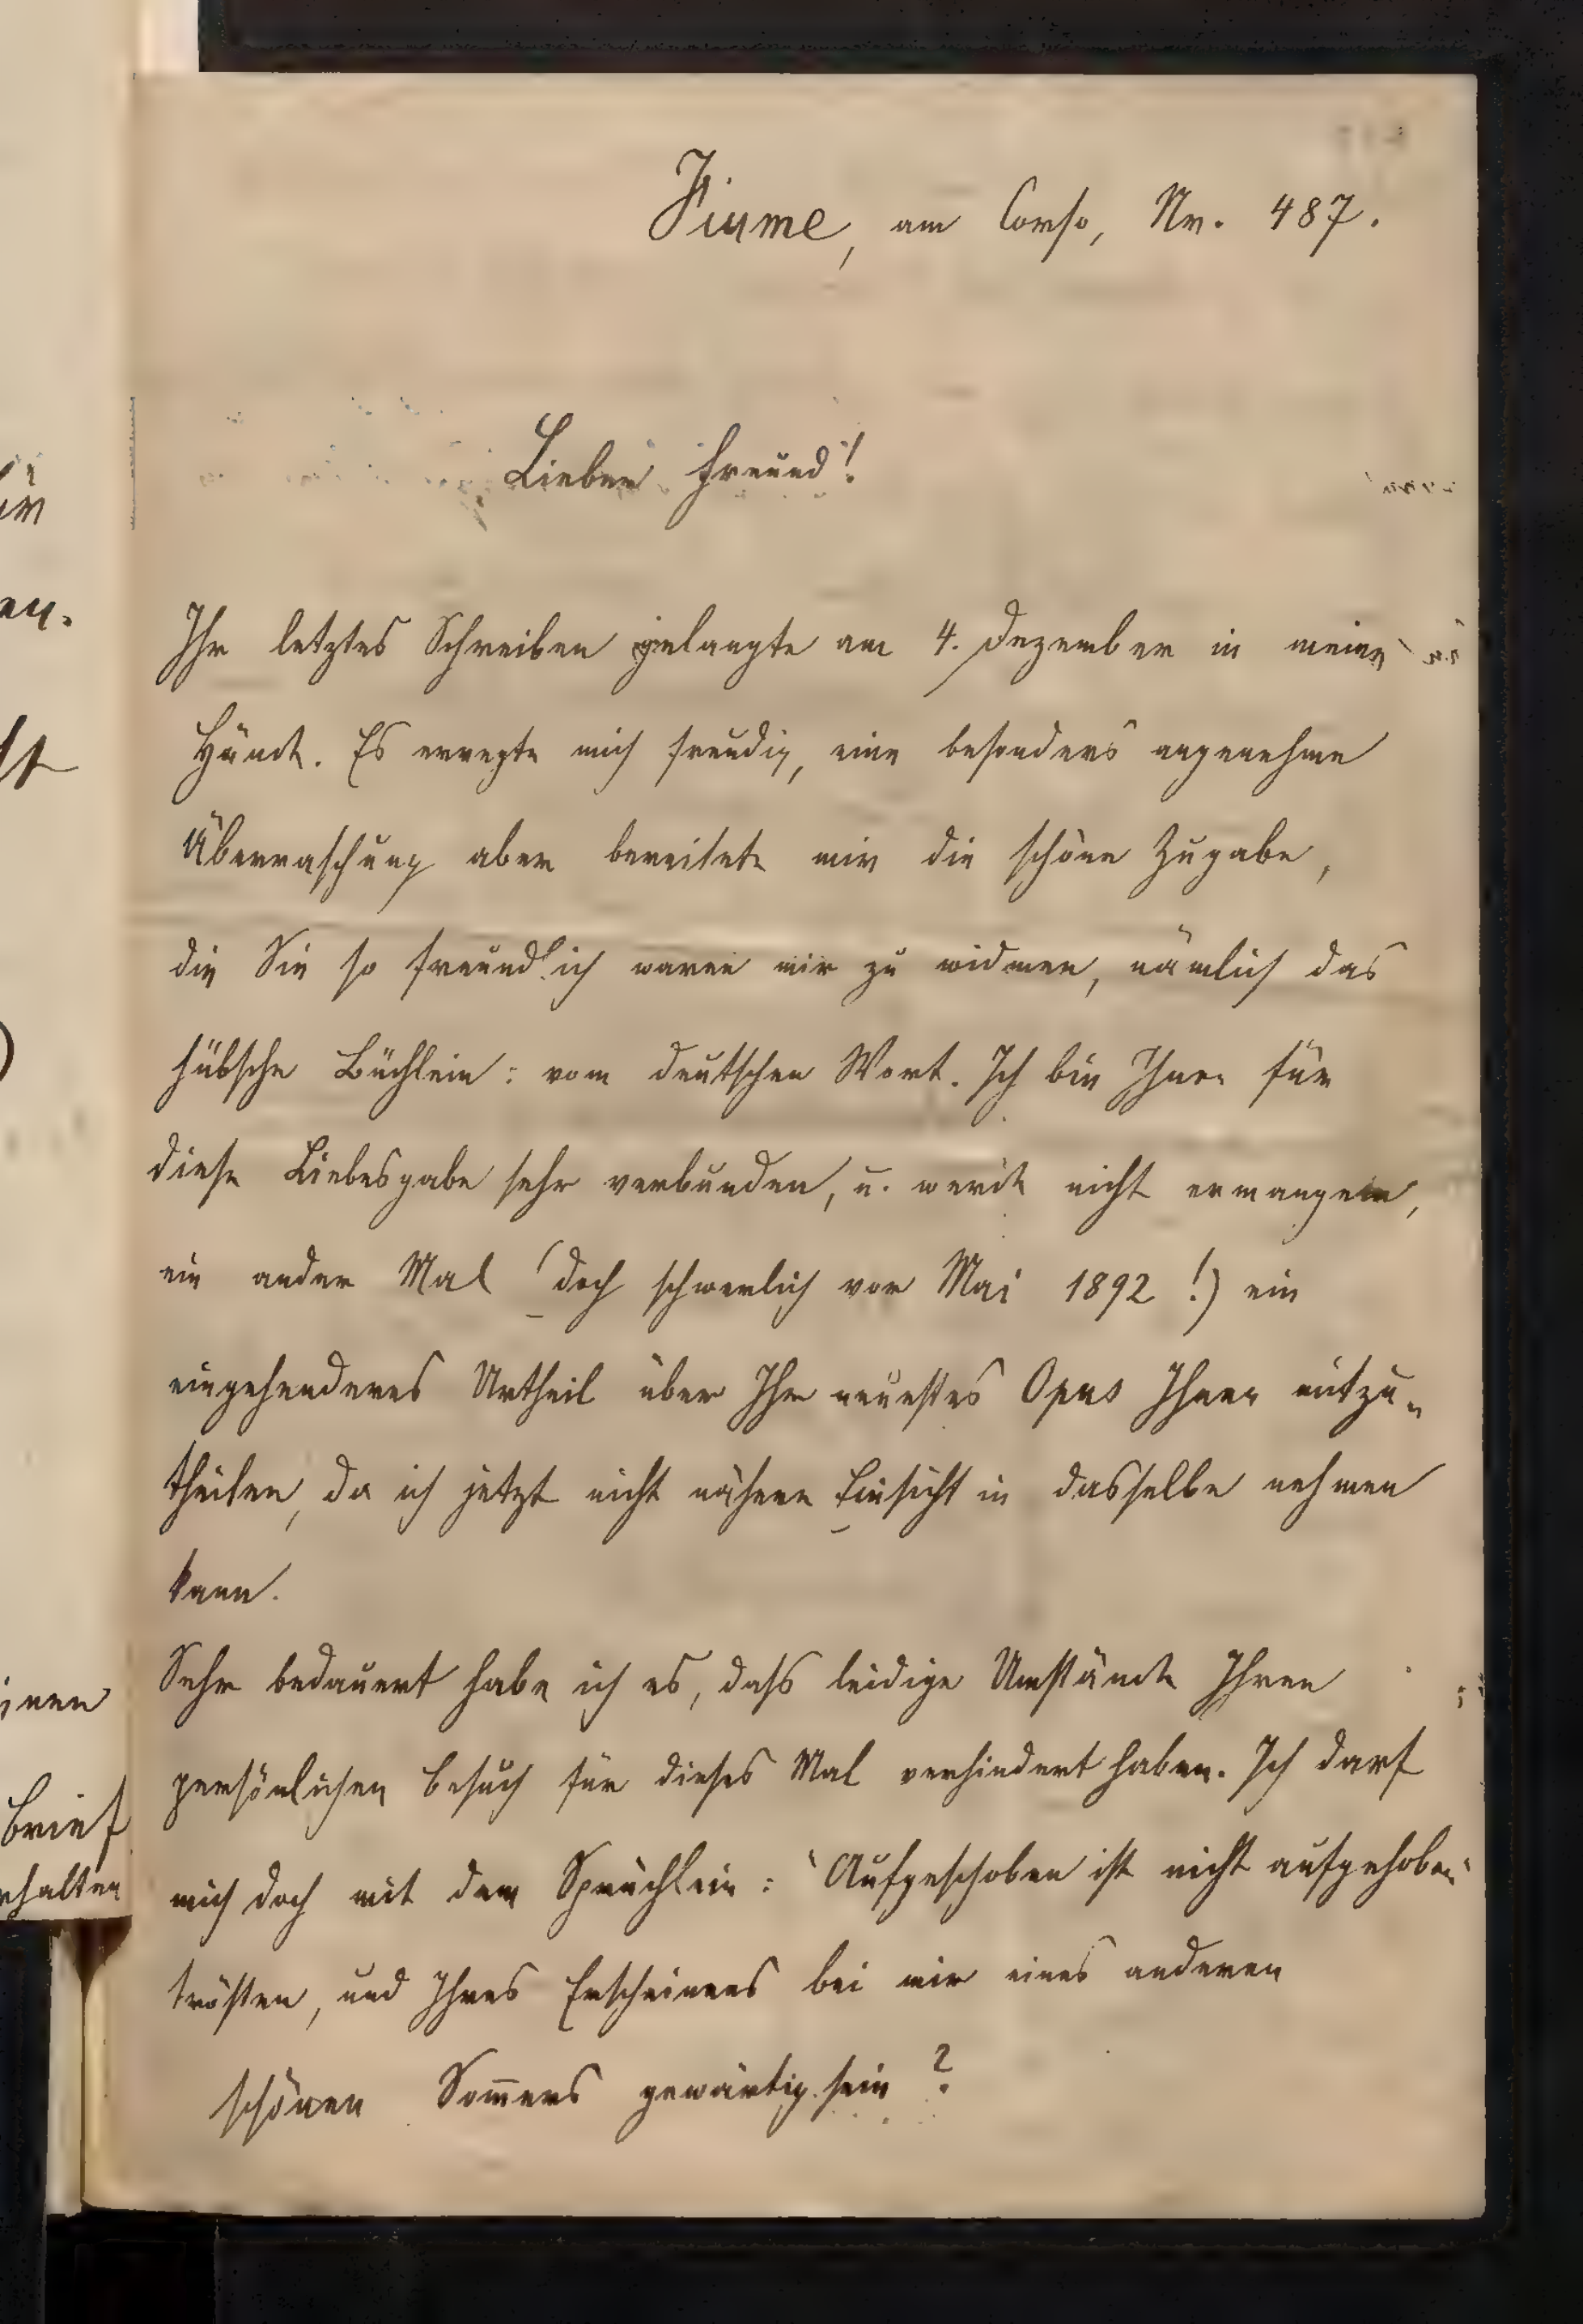 Fiume, am Corso, Nr. 487.
Lieber Freund!
Ihr letztes Schreiben gelangte am 4. Dezember in meine
Hände. Es erregte mich freudig, eine besonders angenehme
Überraschung aber bereitete mir die schöne Zugabe,
die Sie so freundlich waren mir zu widmen, nämlich das
hübsche Büchlein: vom deutschen Wort. Ich bin Ihnen für
diese Liebesgabe sehr verbunden, u. werde nicht ermangeln,
ein ander Mal (doch schwerlich vor Mai 1892!) ein
eingehenderes Urtheil über Ihr neuestes Opus Ihnen mitzu-
theilen, da ich jetzt nicht nähere Einsicht in dasselbe nehmen
kann.
Sehr bedauert habe ich es, dass leidige Umstände Ihren
persönlichen Besuch für dieses Mal verhindert haben. Ich darf
mich doch mit dem Sprüchlein: "Aufgeschoben ist nicht aufgehoben"
trösten, und Ihres Erscheinens bei mir eines anderen
schönen Som̅ers gewärtig sein?
inen
brief
rhalten